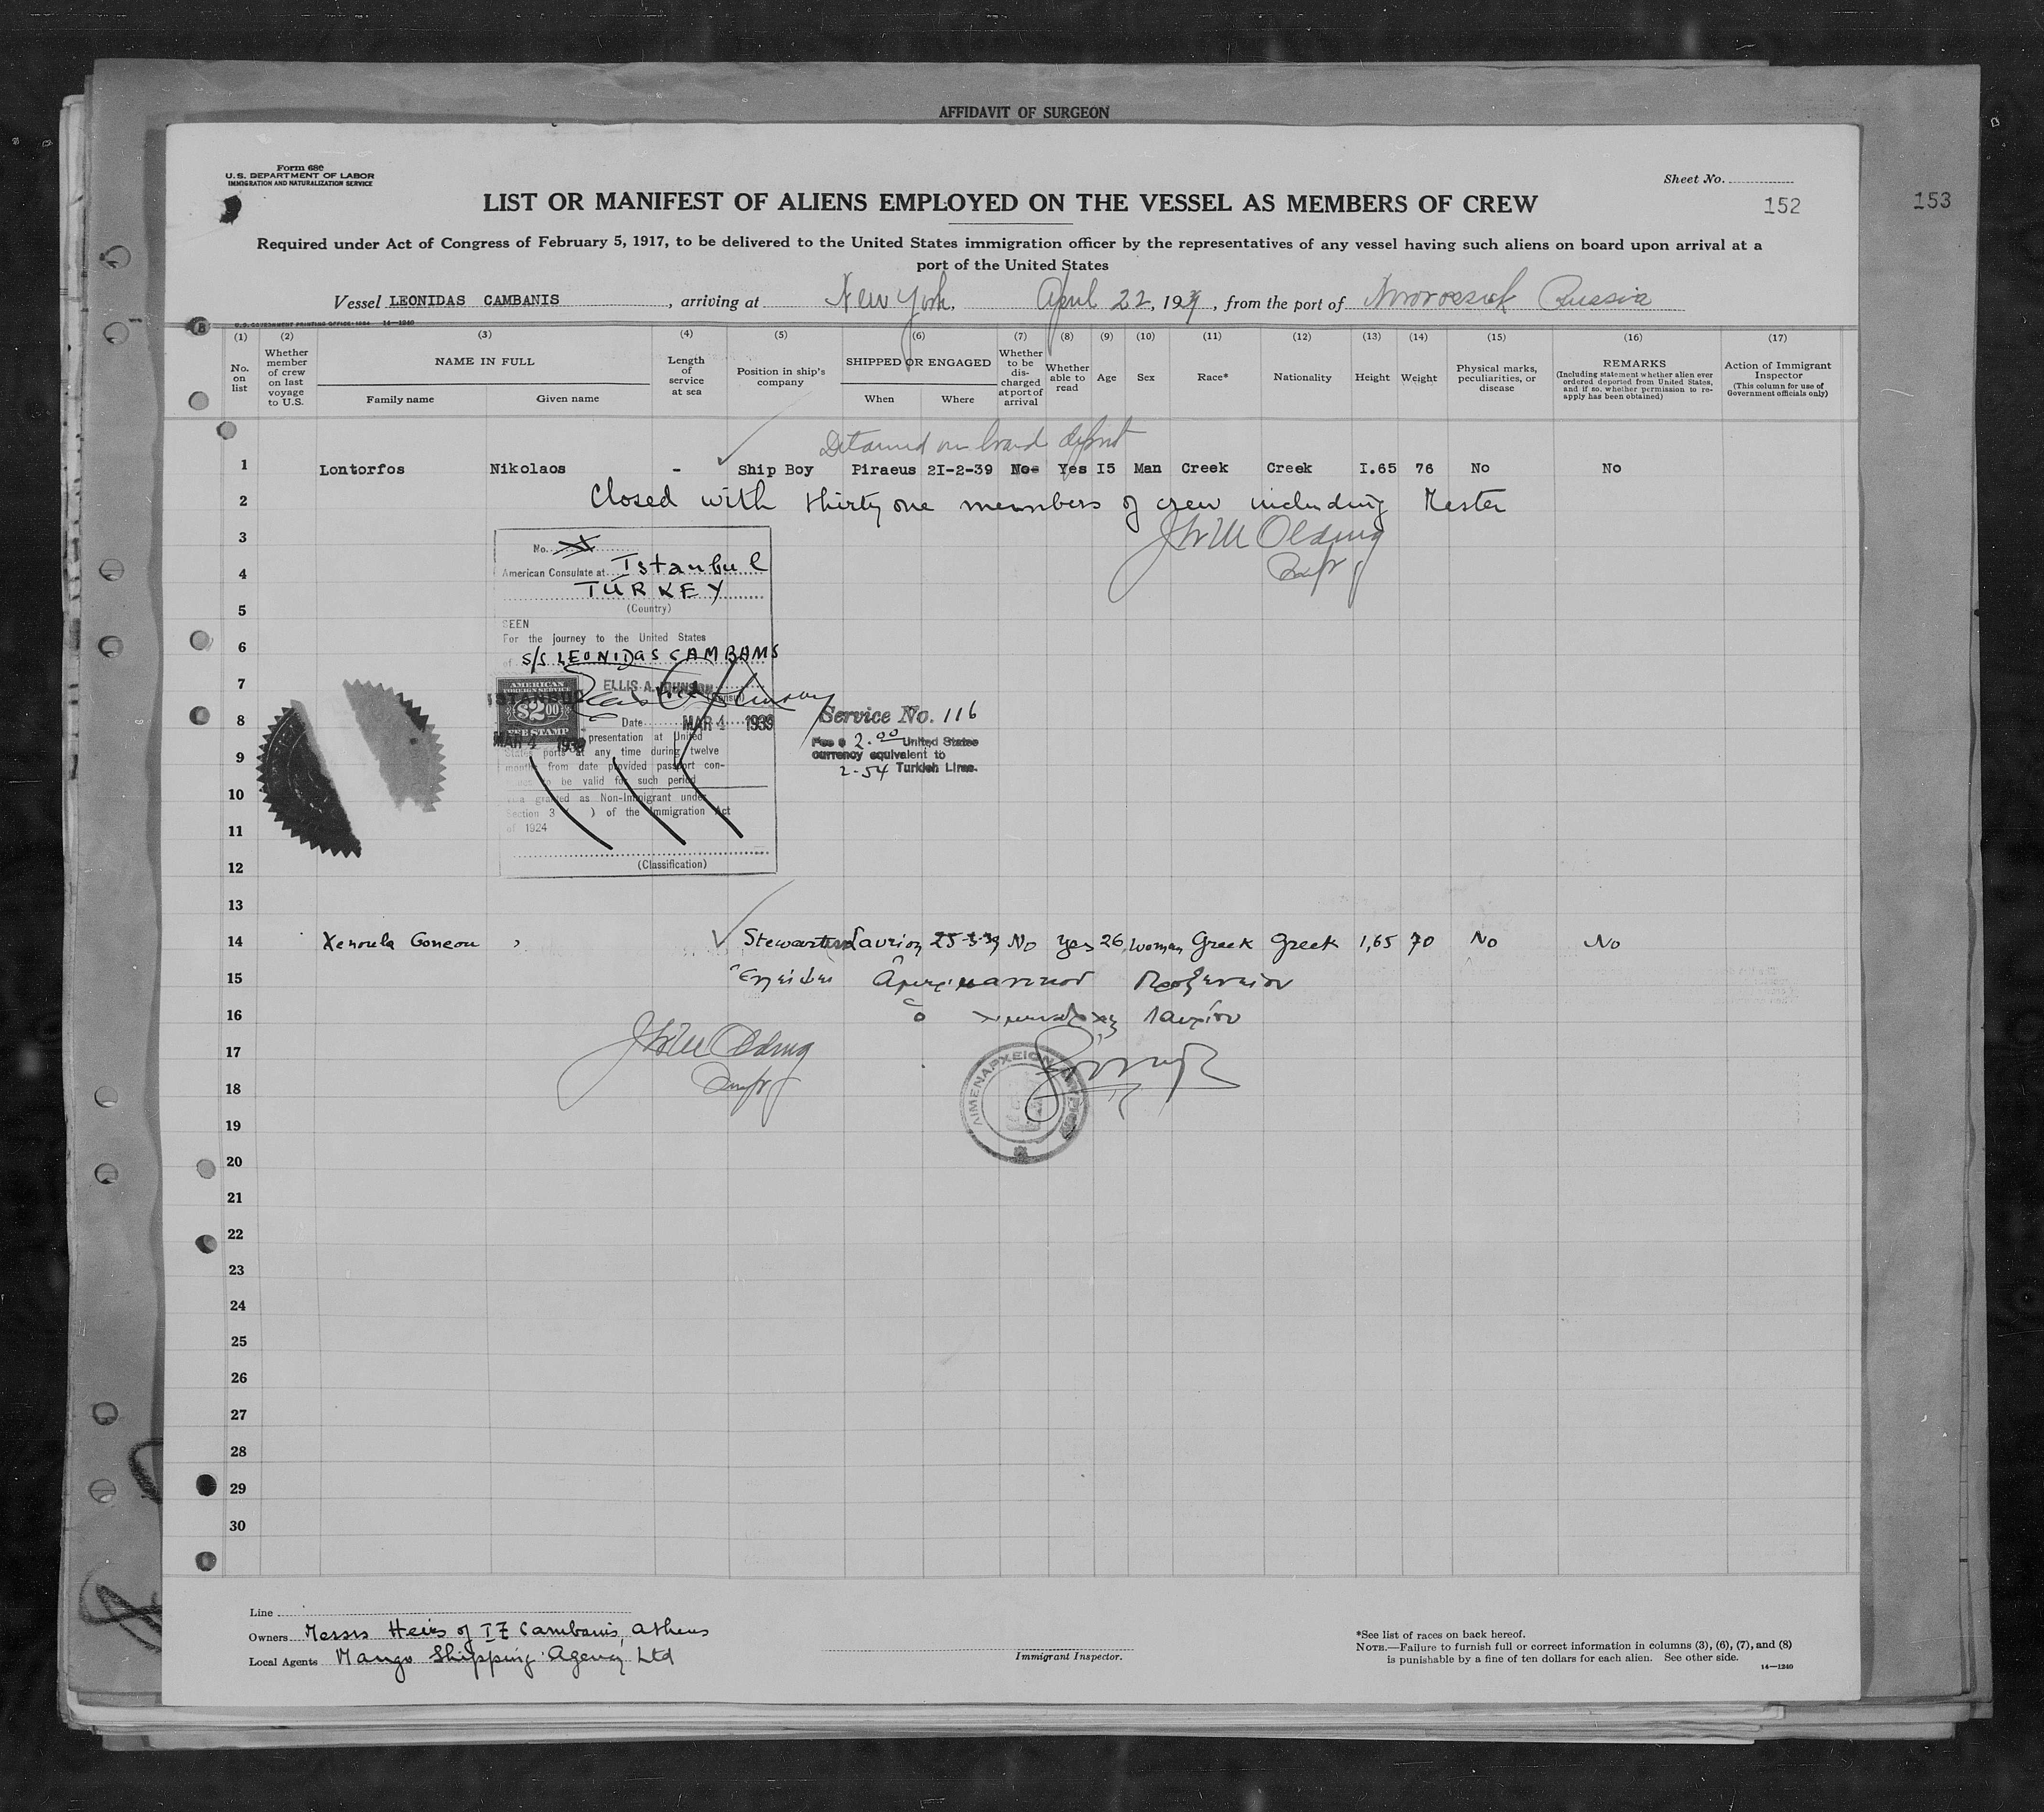 AFFIDAVIT OF SURGEON
Form 680
U.S. DEPARTMENT OF LABOR
IMMIGRATION AND NATURALIZATION SERVICE
Sheet No.
LIST OR MANIFEST OF ALIENS EMPLOYED ON THE VESSEL AS MEMBERS OF CREW
152
153
Required under Act of Congress of February 5, 1917, to be delivered to the United States immigration officer by the representatives of any vessel having such aliens on board upon arrival at a
port of the United States
Vessel LEONIDAS CAMBANIS, arriving at New York, April 22, 1939, from the port of Novorossisk Russia
U.S. GOVERNMENT PRINTING OFFICE: 1934 14—1240
(1) (2) (3) (4) (5) (6) (7) (8) (9) (10) (11) (12) (13) (14) (15) (16) (17)
No. on list
Whether member of crew on last voyage to U.S.
NAME IN FULL
Family name
Given name
Length of service at sea
Position in ship's company
SHIPPED OR ENGAGED
When
Where
Whether to be discharged at port of arrival
Whether able to read
Age
Sex
Race*
Nationality
Height
Weight
Physical marks, peculiarities, or disease
REMARKS
(Including statement whether alien ever ordered deported from United States, and if so, whether permission to reapply has been obtained)
Action of Immigrant Inspector
(This column for use of Government officials only)
Detained on board
1 Lontorfos Nikolaos - Ship Boy Piraeus 2I-2-39 No Yes I5 Man Creek Creek I.65 76 No No
2 Closed with thirty one members of crew including Mester
3 JWM Olding
4
5
6
7
8
9
10
11
12
13
No.
American Consulate at Istanbul
TURKEY
(Country)
SEEN
For the journey to the United States
of S/S LEONIDAS CAMBANIS
ELLIS A. JOHNSON
AMERICAN
FOREIGN SERVICE
$2.00
FEE STAMP
ISTANBUL
MAR 4 1939
Date MAR 4 1939
presentation at United
States ports at any time during twelve
months from date provided passport con-
to be valid for such period
granted as Non-Immigrant under
Section 3 ( ) of the Immigration Act
of 1924
(Classification)
Service No. 116
Fee $ 2.00 United States
currency equivalent to
2.54 Turkish Liras.
14 Xenoula Goneou Stewardess Lavrion 25-3-39 No Yes 26 Woman Greek Greek 1,65 70 No No
15 Προξενείου
16 ὁ Λαυρίου
17 JWM Olding
18
19
20
21
22
23
24
25
26
27
28
29
30
ΛΙΜΕΝΑΡΧΕΙΟΝ ΛΑΥΡΙΟΥ
Line
Owners Messrs Heirs of I Z Cambanis, Athens
Local Agents Mango Shipping Agency Ltd
Immigrant Inspector.
*See list of races on back hereof.
NOTE.—Failure to furnish full or correct information in columns (3), (6), (7), and (8)
is punishable by a fine of ten dollars for each alien. See other side.
14—1240